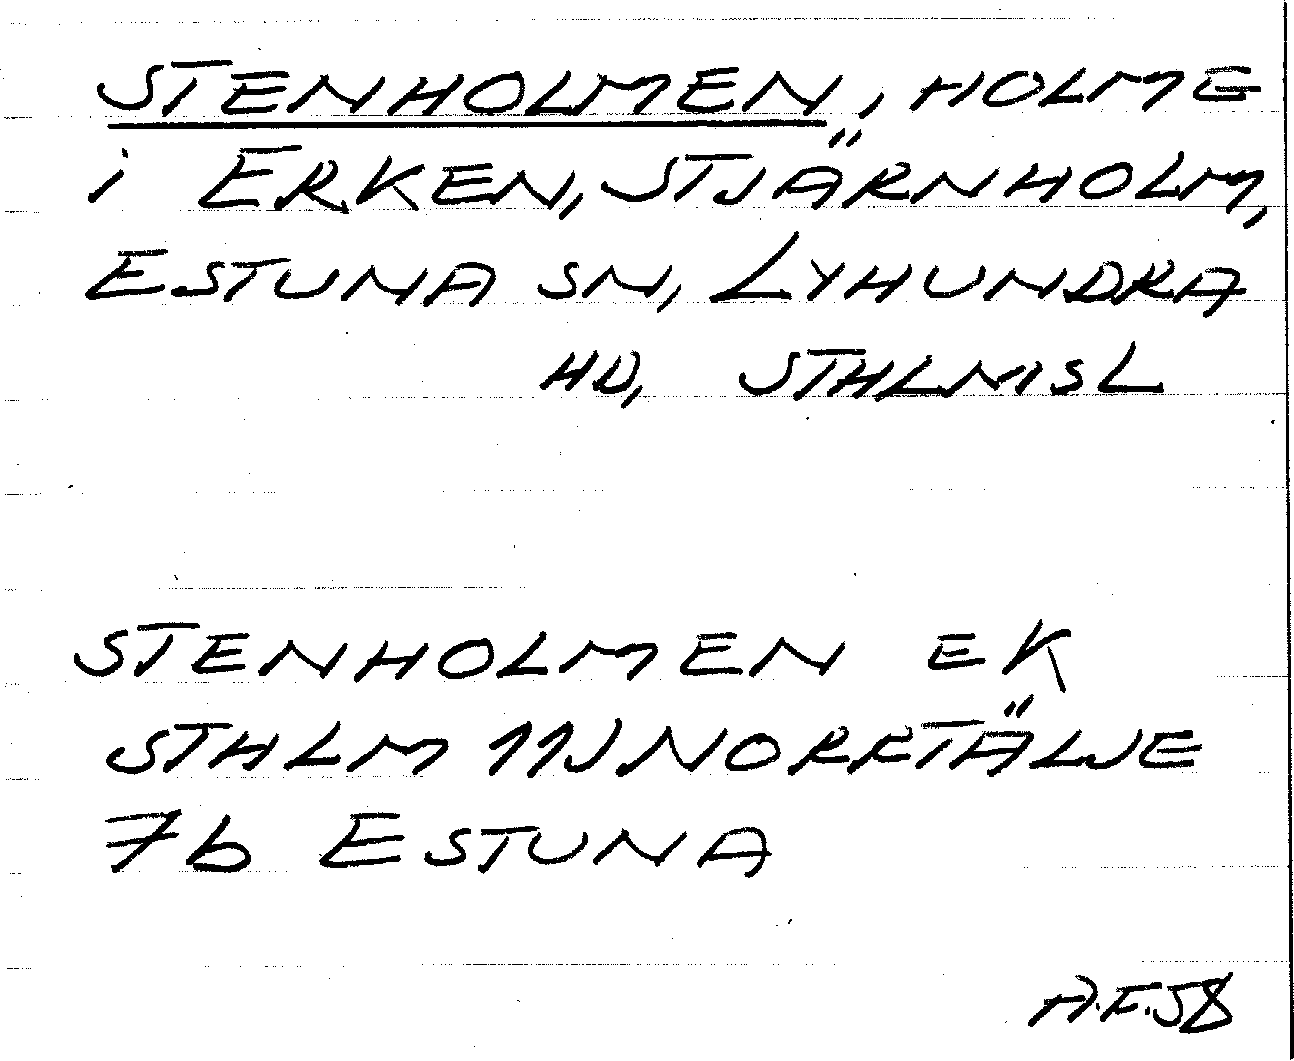 STENHOLMEN, HOLME
i ERKEN, STJÄRNHOLM,
ESTUNA SN, LYHUNDRA
HD, STHLMSL
STENHOLMEN EK
STHLM 11J NORRTÄLJE
7b ESTUNA
A.F.58